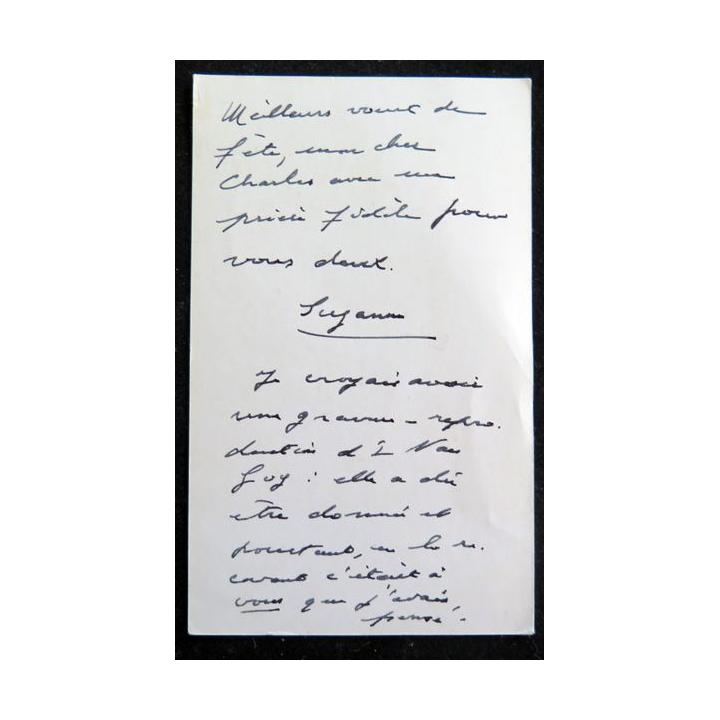 Meilleurs voeux de
fête, mon cher
Charles avec une
prière fidèle pour
vous deux.
Suzanne
Je croyais avoir
une gravure - repro-
duction d' Van
Gog : elle a dû
être donnée et
pourtant, en la re-
cevant c'était à
vous que j'avais
pensé.